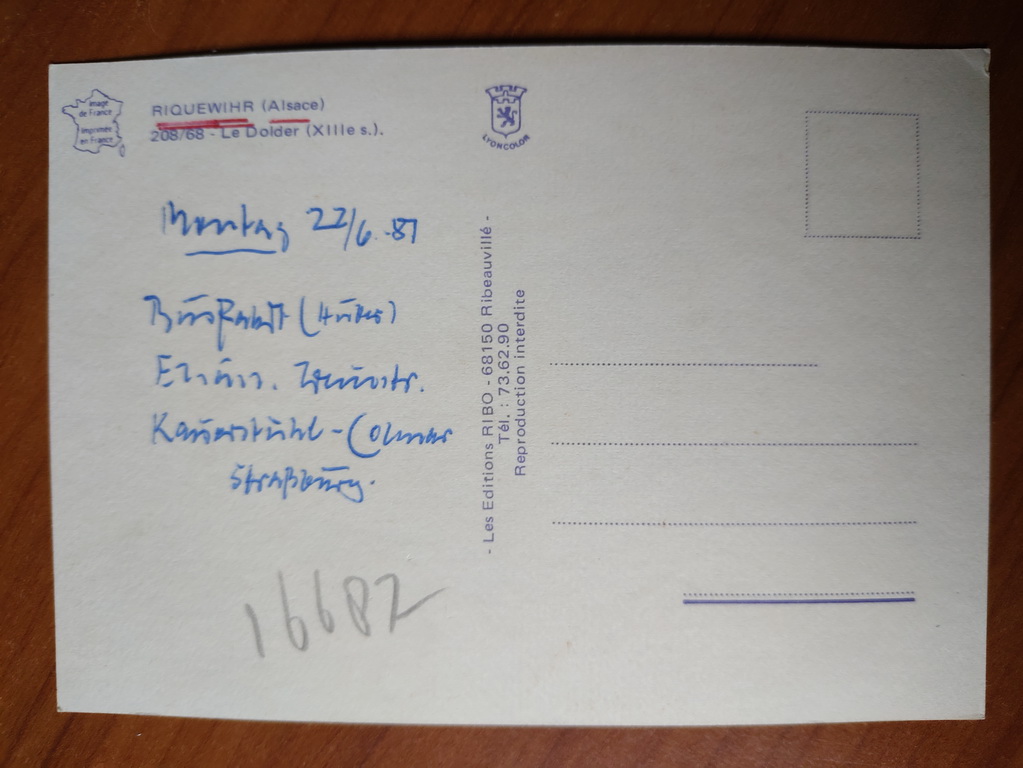 image
de France
imprimée
en France
RIQUEWIHR (Alsace)
208/68 - Le Dolder (XIIIe s.).
LYONCOLOR
Montag 22/6.-81
Busfahrt
Kaiserstuhl-Colmar
Straßburg.
16682
- Les Editions RIBO - 68150 Ribeauvillé -
Tél. : 73.62.90
Reproduction interdite